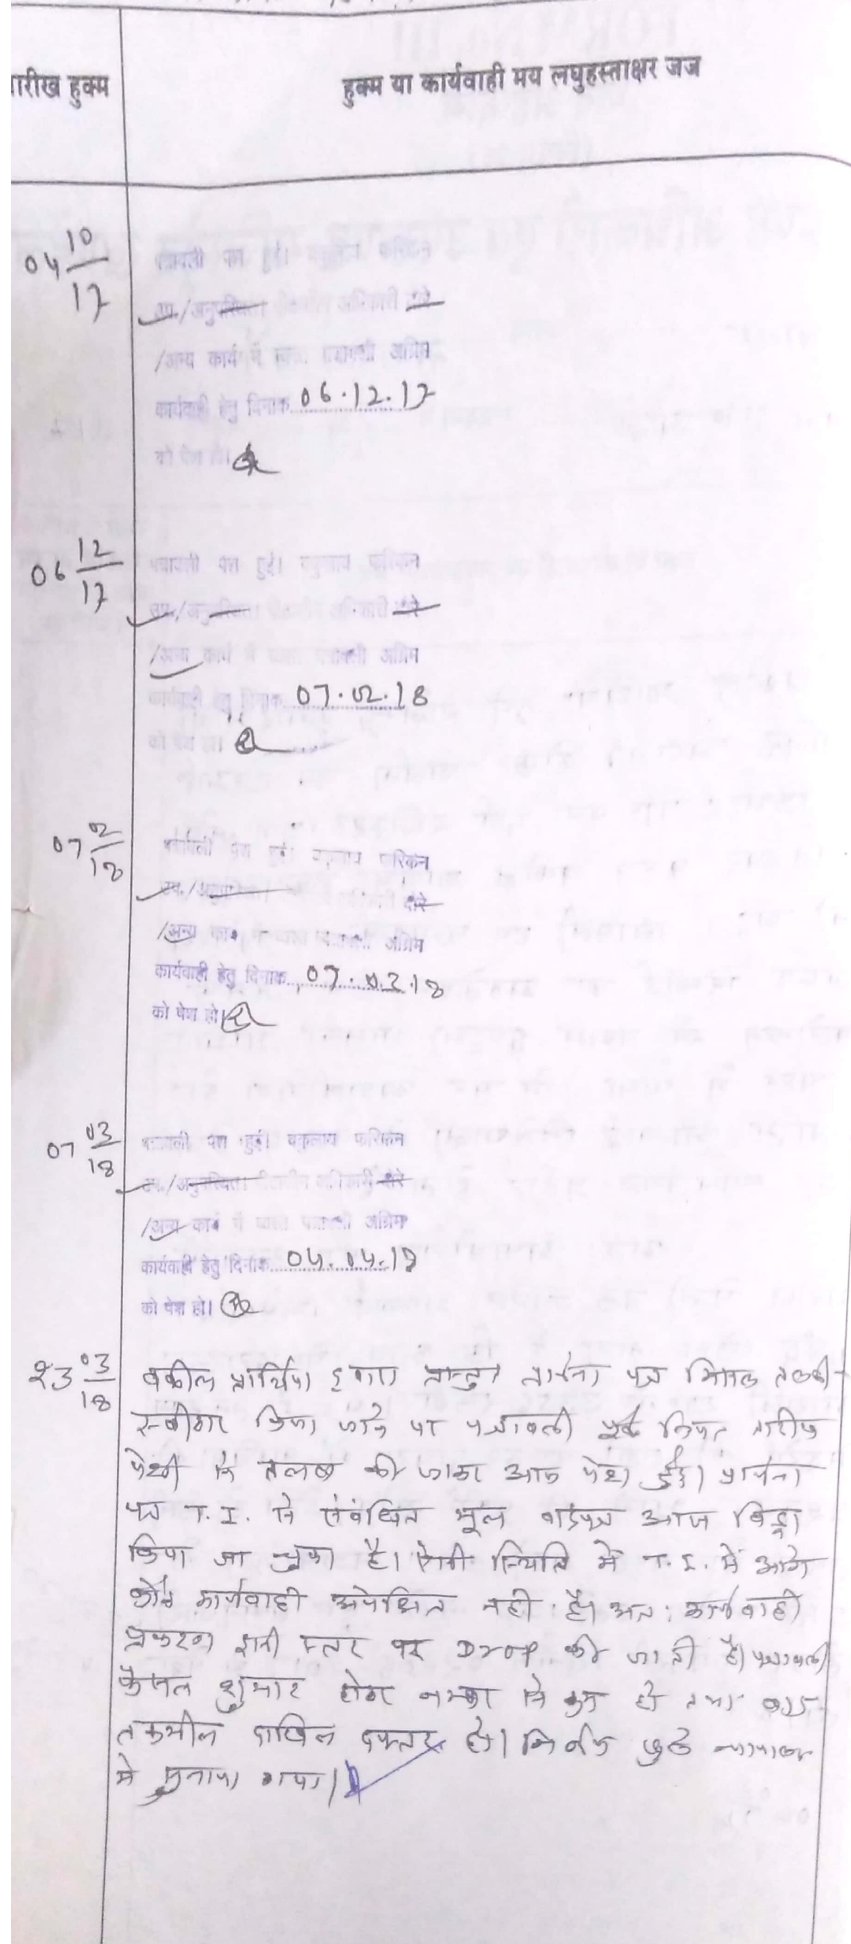 तारीख हुक्म
हुक्म या कार्यवाही मय लघुहस्ताक्षर जज
04 10/17
पत्रावली पेश हुई। वकुलाय फरिकेन
उप./अनुपस्थित। पीठासीन अधिकारी दौरे
/अन्य कार्य में व्यस्त पत्रावली अग्रिम
कार्यवाही हेतु दिनांक 06.12.17
को पेश हो।
06 12/17
पत्रावली पेश हुई। वकुलाय फरिकेन
उप./अनुपस्थित। पीठासीन अधिकारी दौरे
/अन्य कार्य में व्यस्त पत्रावली अग्रिम
कार्यवाही हेतु दिनांक 07.02.18
को पेश हो।
07 02/18
पत्रावली पेश हुई। वकुलाय फरिकेन
उप./अनुपस्थित। दौरे
/अन्य कार्य में व्यस्त पत्रावली अग्रिम
कार्यवाही हेतु दिनांक 07.03.18
को पेश हो।
07 03/18
पत्रावली पेश हुई। वकुलाय फरिकेन
उप./अनुपस्थित। पीठासीन अधिकारी दौरे
/अन्य कार्य में व्यस्त पत्रावली अग्रिम
कार्यवाही हेतु दिनांक 04.04.18
को पेश हो।
23 03/18
वकील प्रार्थिया द्वारा प्रस्तुत प्रार्थना पत्र मिसल तलबी
स्वीकार किया जाने पर पत्रावली पूर्व नियत तारीख
पेशी से तलब की जाकर आज पेश हुई। प्रार्थना
पत्र T.I. से संबंधित मूल वादपत्र आज विड्रा
किया जा चुका है। ऐसी स्थिति में T.I. में आगे
कोई कार्यवाही अपेक्षित नही है। अतः कार्यवाही
प्रकरण इसी स्तर पर Drop की जाती है। पत्रावली
फैसल शुमार होकर नम्बर से कम हो तथा बाद
तकमील दाखिल दफ्तर हो। निर्णय खुले न्यायालय
मे सुनाया गया।